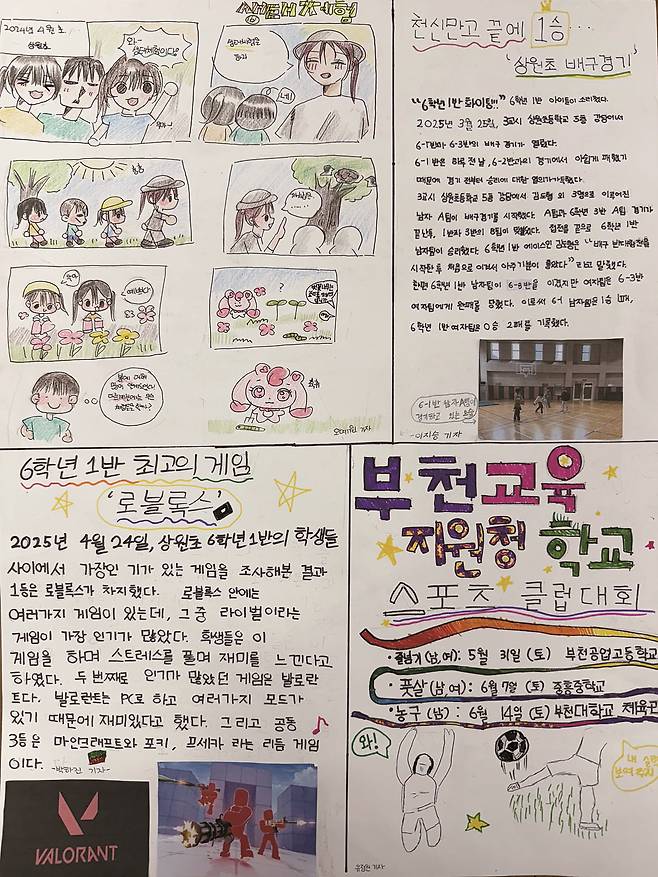 2024년 4월 초
상원초
와~
생태체험이다!
네!
예쁘다!
천신만고 끝에 1승...
'상원초 배구경기'
"6학년 1반 화이팅!!!" 6학년 1반 아이들이 소리쳤다.
2025년 3월 25일, 3교시 상원초등학교 5층 강당에서
6-1반과 6-3반의 배구 경기가 열렸다.
6-1반은 하루 전 날, 6-2반과의 경기에서 아쉽게 패했기
때문에 경기 전부터 승리에 대한 열의가 가득했다.
3교시 상원초등학교 5층 강당에서 김도형 외 3명으로 이루어진
남자 A팀이 배구경기를 시작했다. A팀과 6학년 3반 A팀 경기가
끝난 후, 1반과 3반의 B팀이 맞붙었다. 접전 끝으로 6학년 1반
남자팀이 승리했다. 6학년 1반 에이스인 김도형은 "배구 반대항전을
시작한 후 처음으로 이겨서 아주 기분이 좋았다." 라고 말했다.
한편 6학년 1반 남자팀이 6-3반을 이겼지만 여자팀은 6-3반
여자팀에게 완패를 당했다. 이로써 6-1 남자팀은 1승 1패,
6학년 1반 여자팀은 0승 2패를 기록했다.
6-1반 남자 A팀이
경기하고 있는 모습
-이지승 기자-
6학년 1반 최고의 게임
'로블록스'
2025년 4월 24일, 상원초 6학년 1반의 학생들
사이에서 가장 인기가 있는 게임을 조사해본 결과
1등은 로블록스가 차지했다. 로블록스 안에는
여러가지 게임이 있는데, 그 중 라이벌이라는
게임이 가장 인기가 많았다. 학생들은 이
게임을 하며 스트레스를 풀며 재미를 느낀다고
하였다. 두 번째로 인기가 많았던 게임은 발로란
트다. 발로란트는 PC로 하고 여러가지 모드가
있기 때문에 재미있다고 했다. 그리고 공동
3등은 마인크래프트와 포키, 프세카 라는 리듬 게임
이다. -박하진 기자-
VALORANT
부천교육
지원청 학교
스포츠 클럽대회
• 줄넘기(남,여): 5월 31일 (토) 부천공업고등학교
• 풋살(남,여): 6월 7일 (토) 중흥중학교
• 농구(남): 6월 14일(토) 부천대학교 체육관
와!
내 실력
보여주지